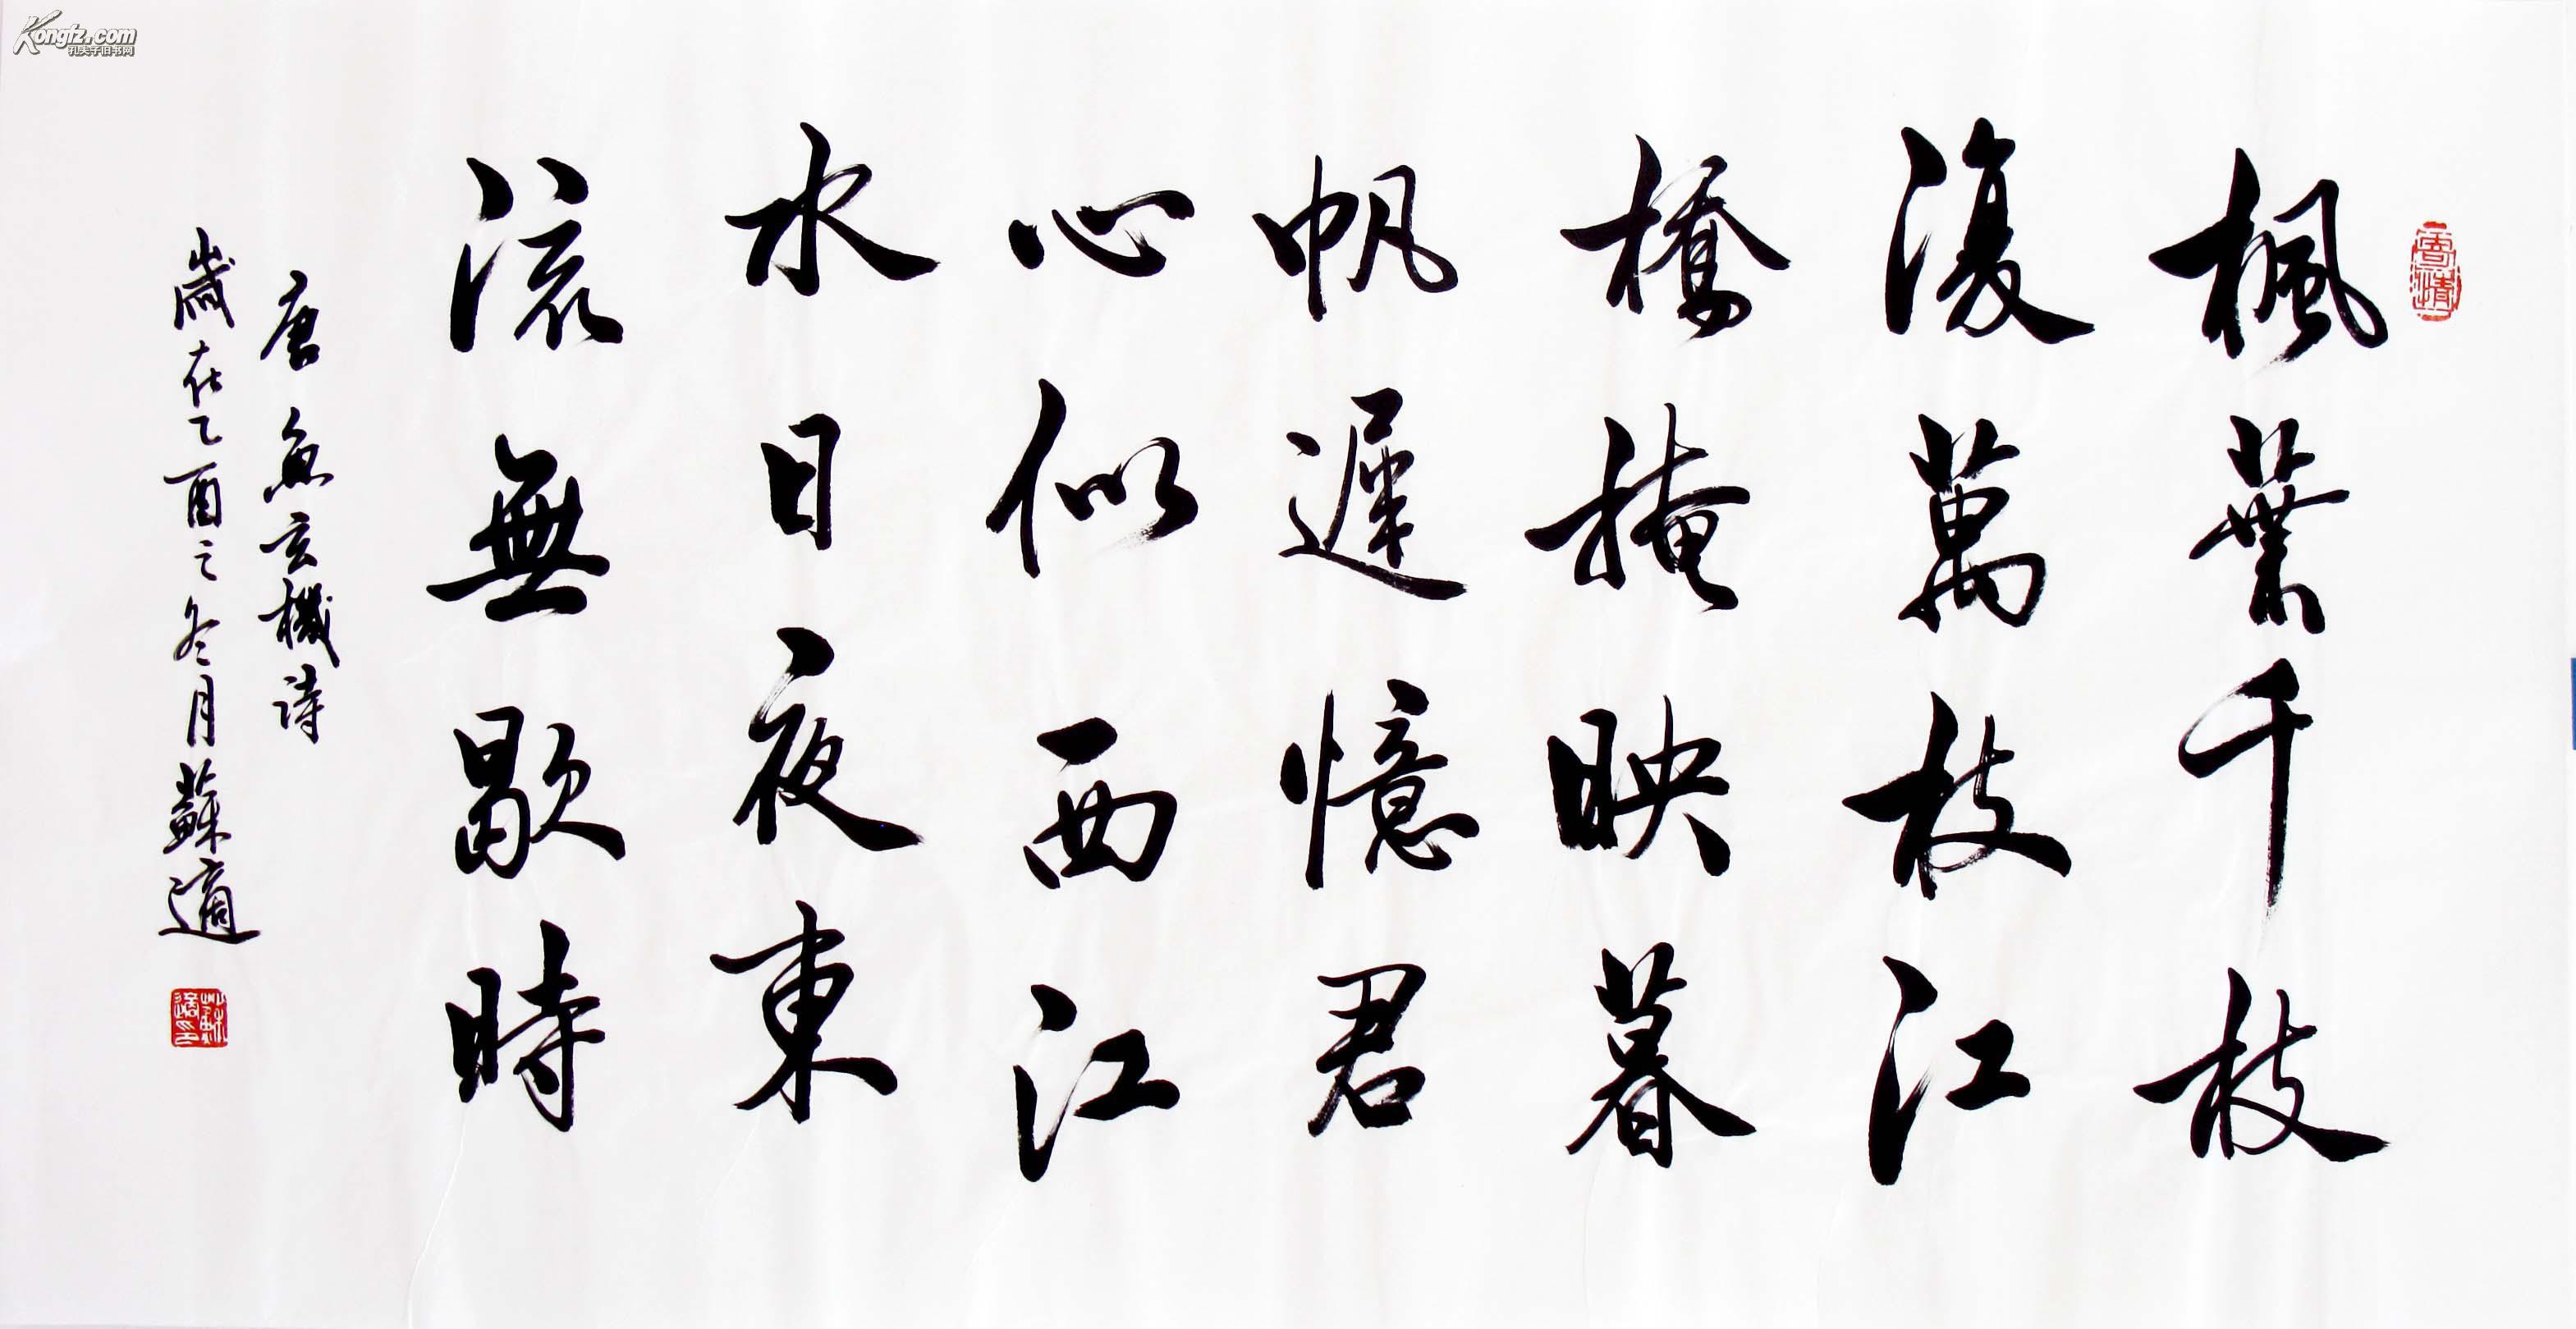 楓葉千枝
復萬枝江
橋掩映暮
帆遲憶君
心似西江
水日夜東
流無歇時
唐魚玄機詩
歲在乙酉之冬月蘇適
蘇適印
Kongfz.com
孔夫子旧书网